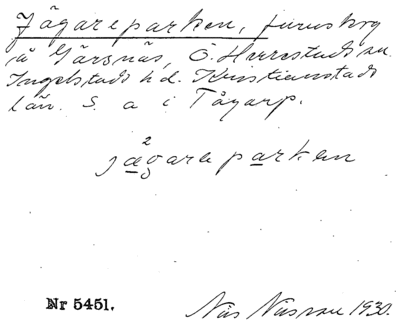 Jägareparken, furuskog
å Gärsnäs, Ö. Herrestads sn.
Ingelstads hd. Kristianstads
län. S. a i Tågarp.
2
jægareparken
Nr 5451. Nils Nilsson 1930.